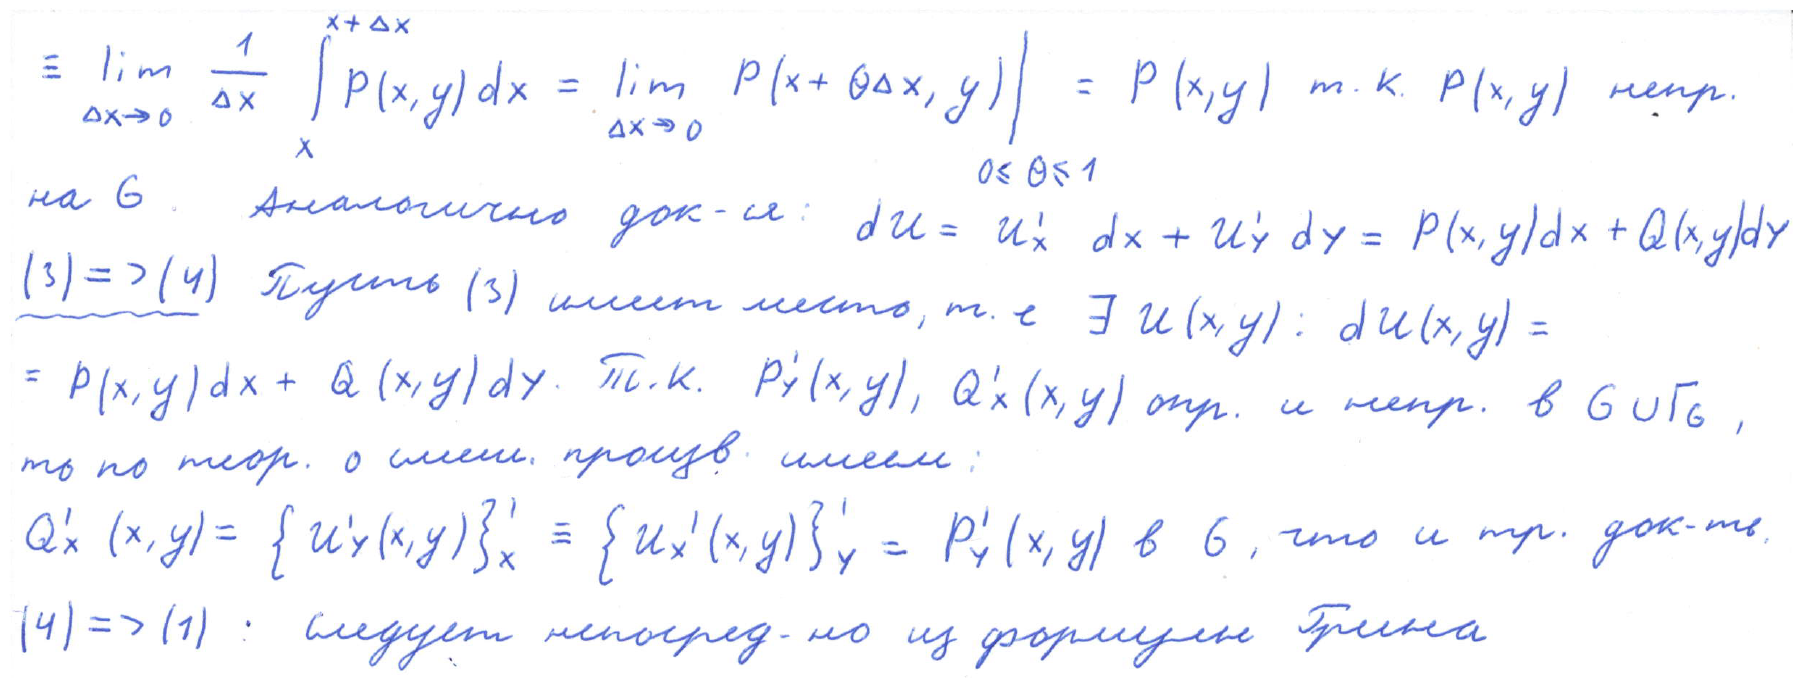 ≡ lim_{Δx→0} 1/Δx ∫_x^{x+Δx} P(x,y)dx = lim_{Δx→0} P(x+θΔx, y)|_{0≤θ≤1} = P(x,y) т.к. P(x,y) непр.
на G. Аналогично док-ся: dU = U'x dx + U'y dy = P(x,y)dx + Q(x,y)dy
(3)=>(4) Пусть (3) имеет место, т.е ∃ U(x,y): dU(x,y) =
= P(x,y)dx + Q(x,y)dy. Т.к. P'y(x,y), Q'x(x,y) опр. и непр. в G∪Г_G,
то по теор. о смеш. произв. имеем:
Q'x(x,y) = {U'y(x,y)}'x ≡ {Ux'(x,y)}'y = P'y(x,y) в G, что и тр. док-ть.
(4)=>(1): следует непосред-но из формулы Грина